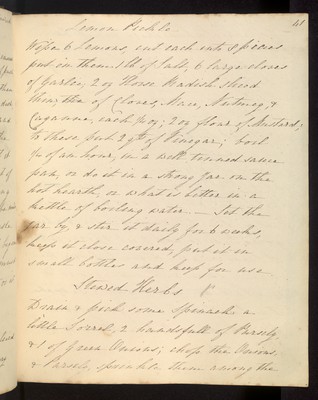 41
Lemon Pickle
Wipe 6 Lemons, cut each into 8 pieces
put on them 1 lb of Salt, 6 large cloves
of Garlic, 2 oz Horse Radish sliced
thin, then of Cloves, Mace, Nutmeg, &
Cayanne, each ¼ oz; 2 oz flour of Mustard;
to these put 2 qts of Vinegar; boil
¼ of an hour, in a well tinned sauce
pan, or do it in a strong jar on the
hot hearth, or what is better in a
kettle of boiling water. — Set the
jar by, & stir it daily for 6 weeks,
keep it close covered, put it in
small bottles and keep for use
Stewed Herbs
Drain & pick some Spinach, a
little Sorrel, 2 handsfull of Parsely,
& 1 of Green Onions; chop the Onions,
& Parsely, sprinkle them among the